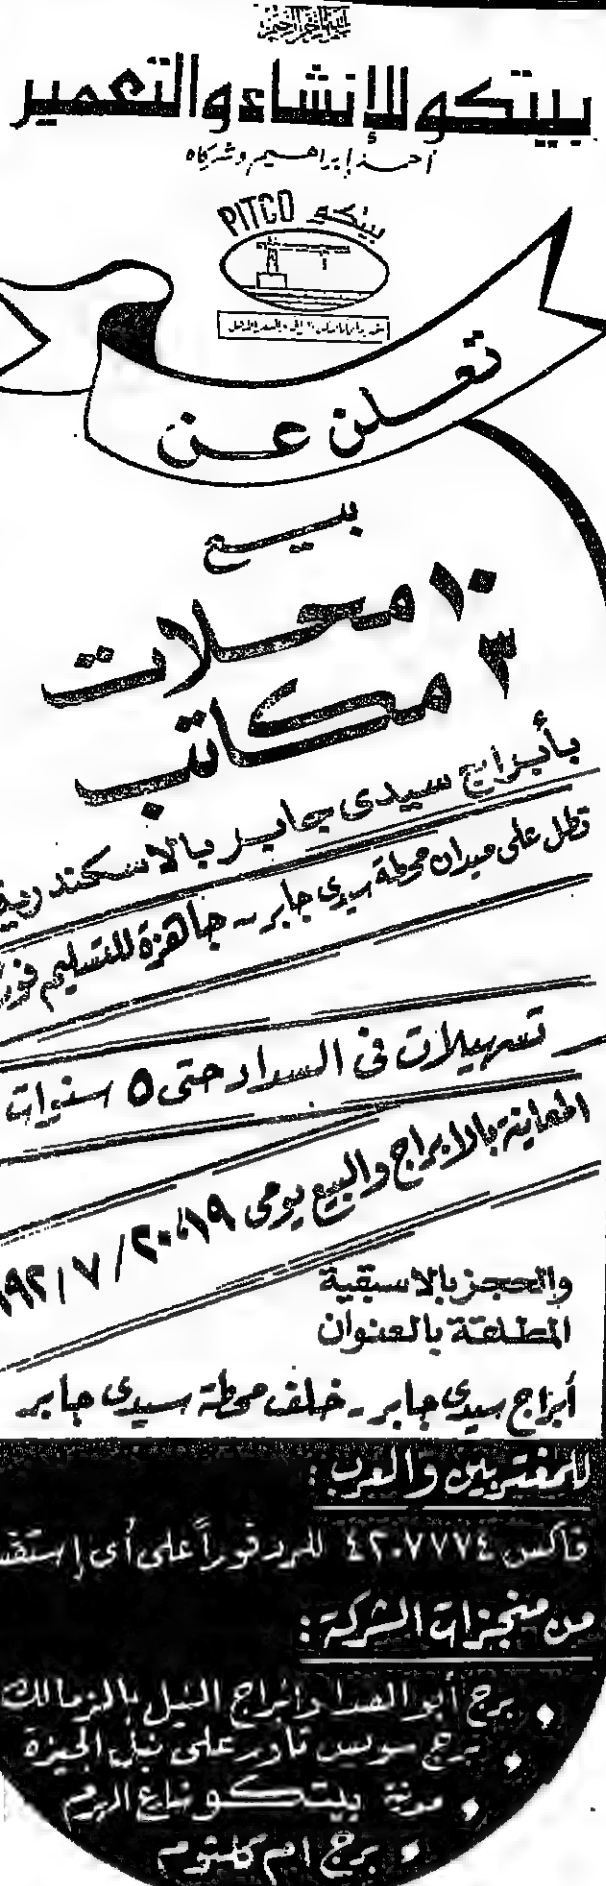 بيتكو للإنشاء والتعمير
أحمد إبراهيم وشركاه
PITCO بيتكو
تعلن عن
بيع
١٠ محلات
٣ مكاتب
بأبراج سيدى جابر بالاسكندرية
تطل على ميدان محطة سيدى جابر - جاهزة للتسليم فورًا
تسهيلات فى السداد حتى ٥ سنوات
المعاينة بالابراج والبيع يومى ١٩، ٢٠ / ٧ / ٩٢
والحجز بالاسبقية
المطلقة بالعنوان
أبراج سيدى جابر - خلف محطة سيدى جابر
للمغتربين والعرب:
فاكس ٤٢٠٧٧٧٤ للرد فوراً على أى إستفس
من منجزات الشركة:
• برج أبو الفدا وأبراج النيل بالزمالك
• برج سويس تاور على نيل الجيزة
• مدينة بيتكو شارع الهرم
• برج ام كلثوم